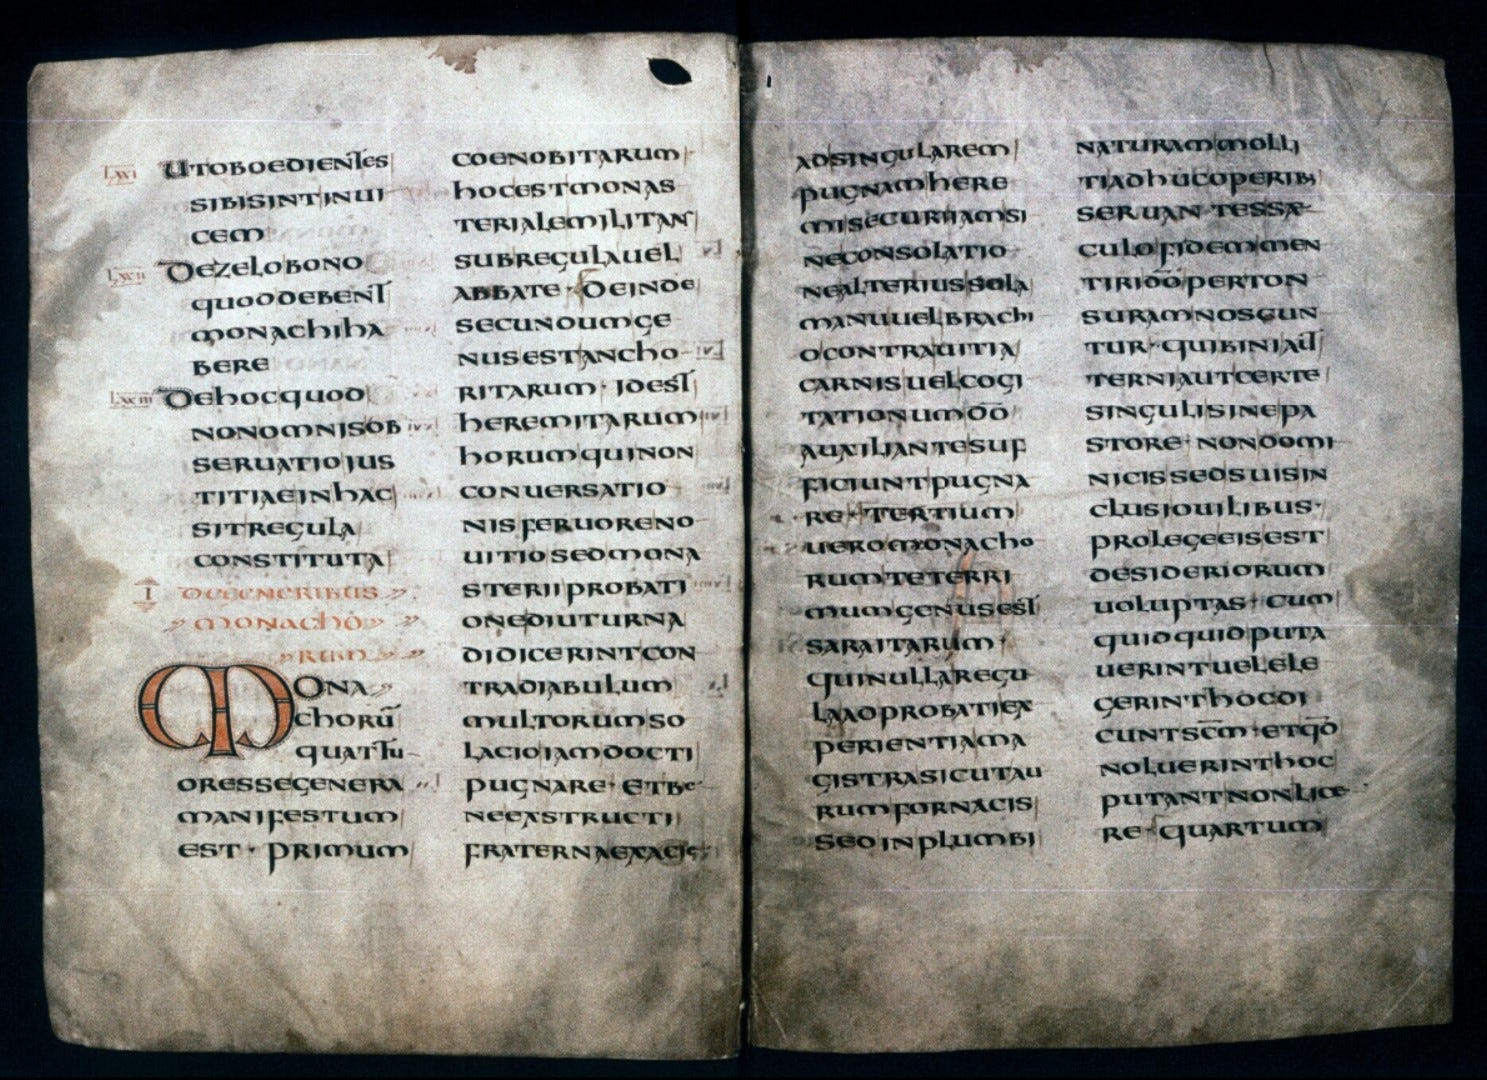 LXXI UTOBOEDIENTES
SIBISINTINUI
CEM
LXXII DEZELOBONO
QUODDEBENT
MONACHIHA
BERE
LXXIII DEHOCQUOD
NONOMNISOB
SERUATIOIUS
TITIAEINHAC
SITREGULA
CONSTITUTA
I DEGENERIBUS
MONACHO
RUM
MONA
CHORŪ
QUATTU
ORESSEGENERA
MANIFESTUM
EST · PRIMUM
COENOBITARUM
HOCESTMONAS
TERIALEMILITANS
SUBREGULAUEL
ABBATE · DEINDE
SECUNDUMGE
NUSESTANCHO
RITARUM · IDEST
HEREMITARUM
HORUMQUINON
CONUERSATIO
NISFERUORENO
UITIOSEDMONA
STERIIPROBATI
ONEDIUTURNA
DIDICERINTCON
TRADIABULUM
MULTORUMSO
LACIOIAMDOCTI
PUGNARE · ETBE
NEEXSTRUCTI
FRATERNAEXACIE
ADSINGULAREM
PUGNAMHERE
MISECURIIAMSI
NECONSOLATIO
NEALTERIUSSOLA
MANUUELBRACHI
OCONTRAUITIA
CARNISUELCOGI
TATIONUMDŌ
AUXILIANTESUF
FICIUNTPUGNA
RE · TERTIUM
UEROMONACHO
RUMTETERRI
MUMGENUSEST
SARAITARUM ·
QUINULLAREGU
LAXOPROBATIEX
PERIENTIAMA
GISTRASICUTAU
RUMFORNACIS
SEDINPLUMBI
NATURAMMOLLI
TIADHUCOPERIB;
SERUANTESSAE
CULOFIDEMMEN
TIRIDŌPERTON
SURAMNOSCUN
TUR · QUIBINIAUT
TERNIAUTCERTE
SINGULISINEPA
STORE · NONDOMI
NICISSEDSUISIN
CLUSIOUILIBUS ·
PROLEGEEISEST
DESIDERIORUM
UOLUPTAS · CUM
QUIDQUIDPUTA
UERINTUELELE
GERINTHOCDI
CUNTSC̄M · ETQD̄
NOLUERINTHOC
PUTANTNONLICE
RE · QUARTUM